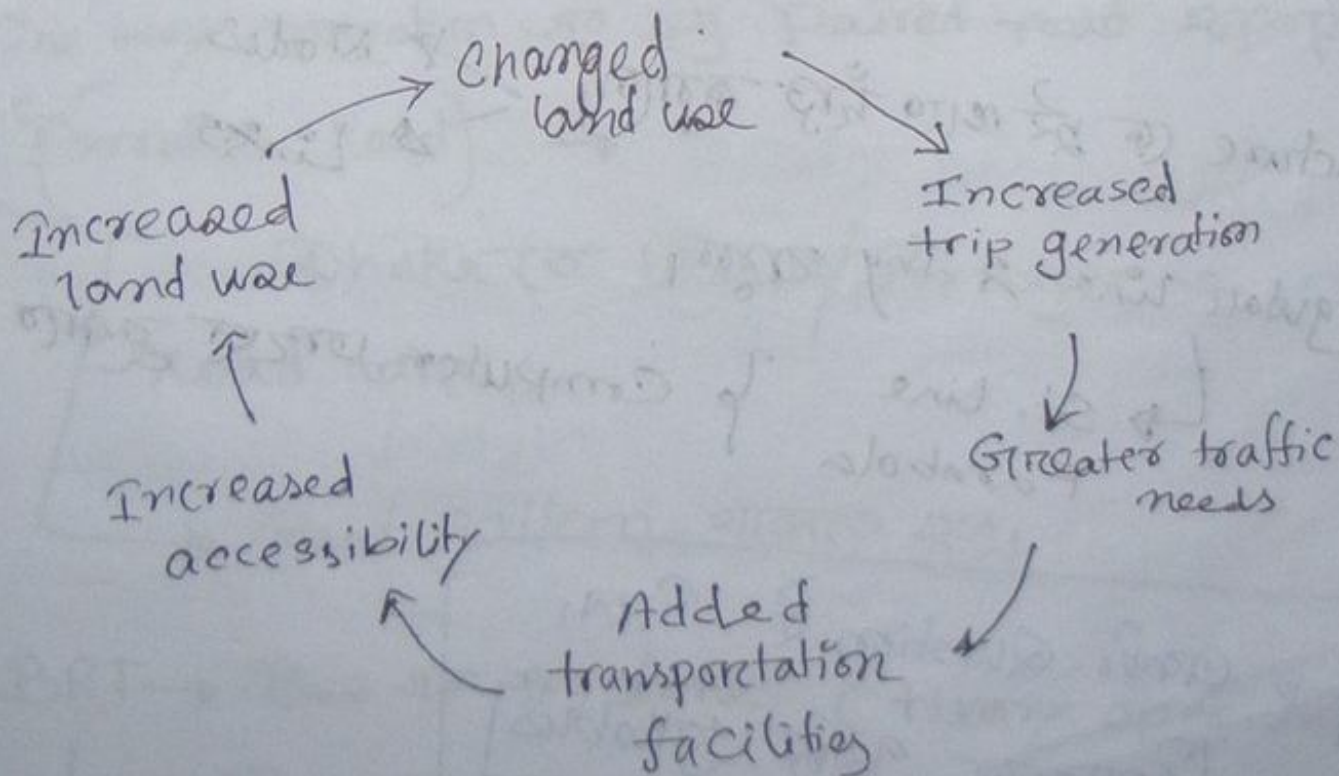 Changed
land use
Increased
trip generation
Greater traffic
needs
Added
transportation
facilities
Increased
accessibility
Increased
land use